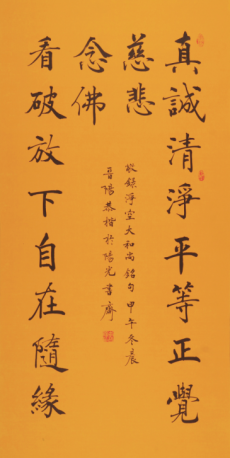 真誠清淨平等正覺
慈悲
念佛
看破放下自在隨緣
敬錄淨空大和尚銘句甲午冬晨
晉陽恭楷於陽光書齋